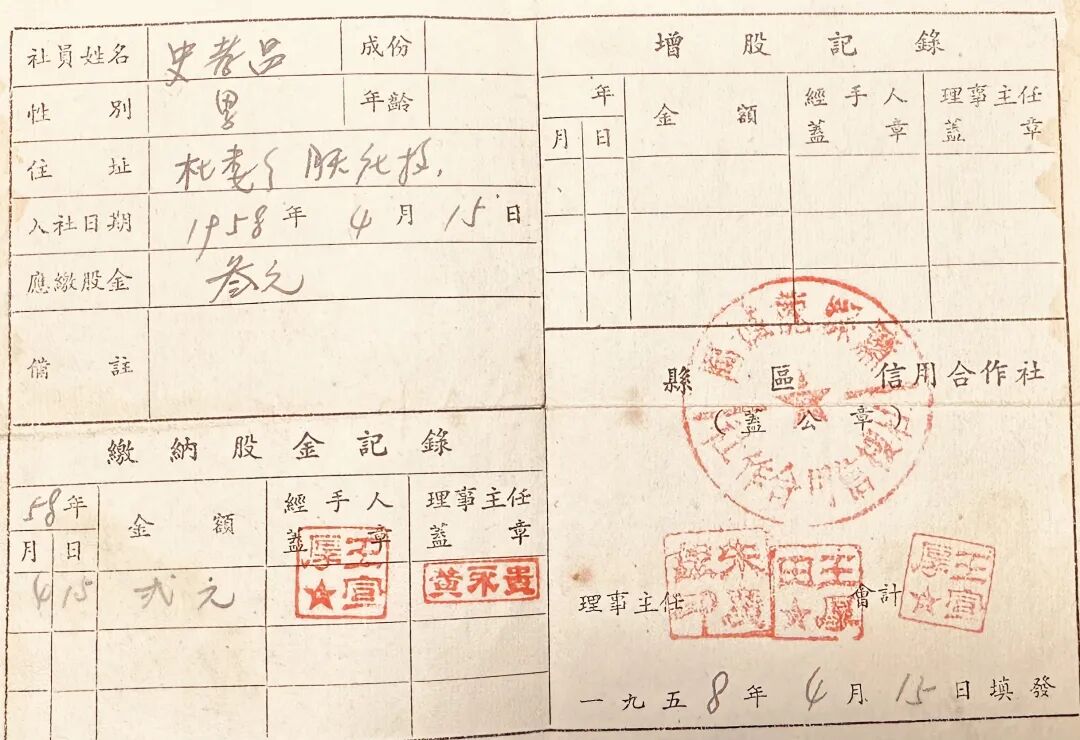 社員姓名 史孝品 成份
性別 男 年齡
住址
入社日期 1958年4月15日
應繳股金 叁元
備註
繳納股金記錄
58年 金額 經手人蓋章 理事主任蓋章
月 日
4 15 弍元 王宣厚 黄永貴
增股記錄
年 金額 經手人蓋章 理事主任蓋章
月 日
縣 區 信用合作社
(蓋公章)
理事主任 會計 王宣厚
一九五8年4月15日填發